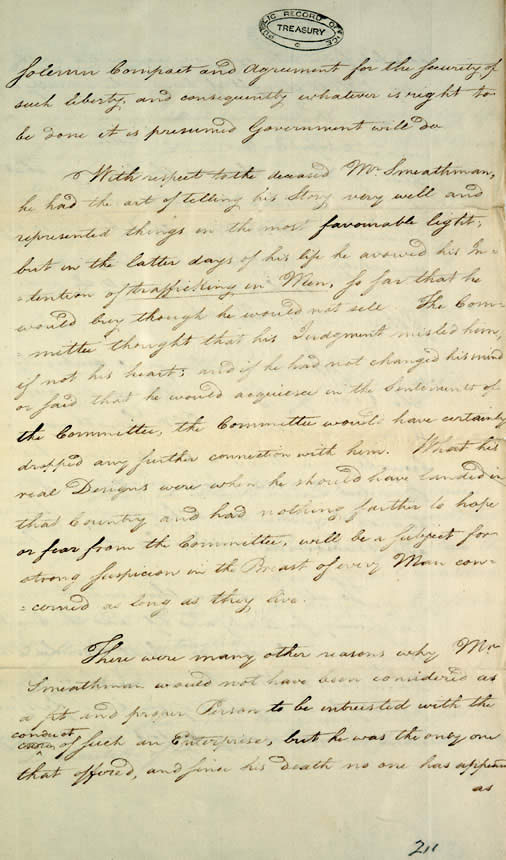 PUBLIC RECORD OFFICE
TREASURY
Solemn Compact and Agreement for the Security of
such liberty, and consequently whatever is right to
be done it is presumed Government will do
With respect to the deceased Mr Smeathman,
he had the art of telling his Story very well and
represented things in the most favourable light;
but in the latter days of his life he avowed his In-
-tention of trafficking in Men, so far that he
would buy though he would not sell. The Com-
-mittee thought that his Judgment misled him,
if not his heart; and if he had not changed his mind
or said that he would acquiesce in the Sentiments of
the Committee, the Committee would have certainly
dropped any further connection with him. What his
real Designs were when he should have landed in
that Country and had nothing farther to hope
or fear from the Committee, will be a subject for
strong suspicion in the Breast of every Man con-
-cerned as long as they live.
There were many other reasons why Mr
Smeathman would not have been considered as
a fit and proper Person to be intrusted with the
conduct
of such an Enterprise, but he was the only one
that offered, and since his death no one has appear
as